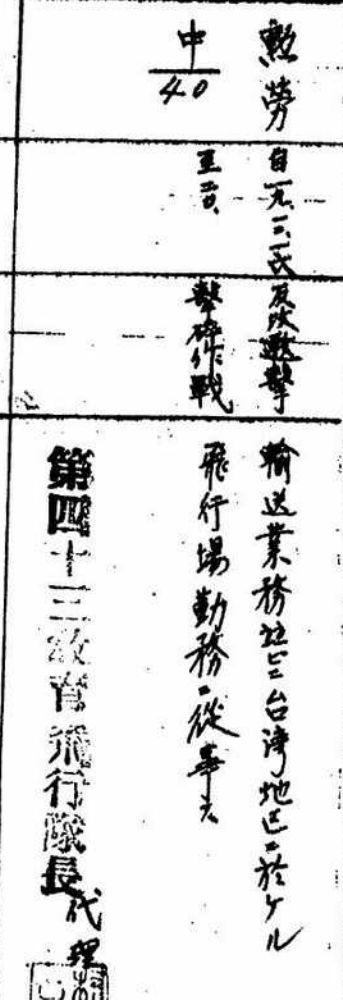 勲労
中
40
自一九、一二、一
至二〇、
反攻邀撃
撃砕作戦
輸送業務竝ニ台湾地区ニ於ケル
飛行場勤務ニ従事ス
第四十三教育飛行隊長代理